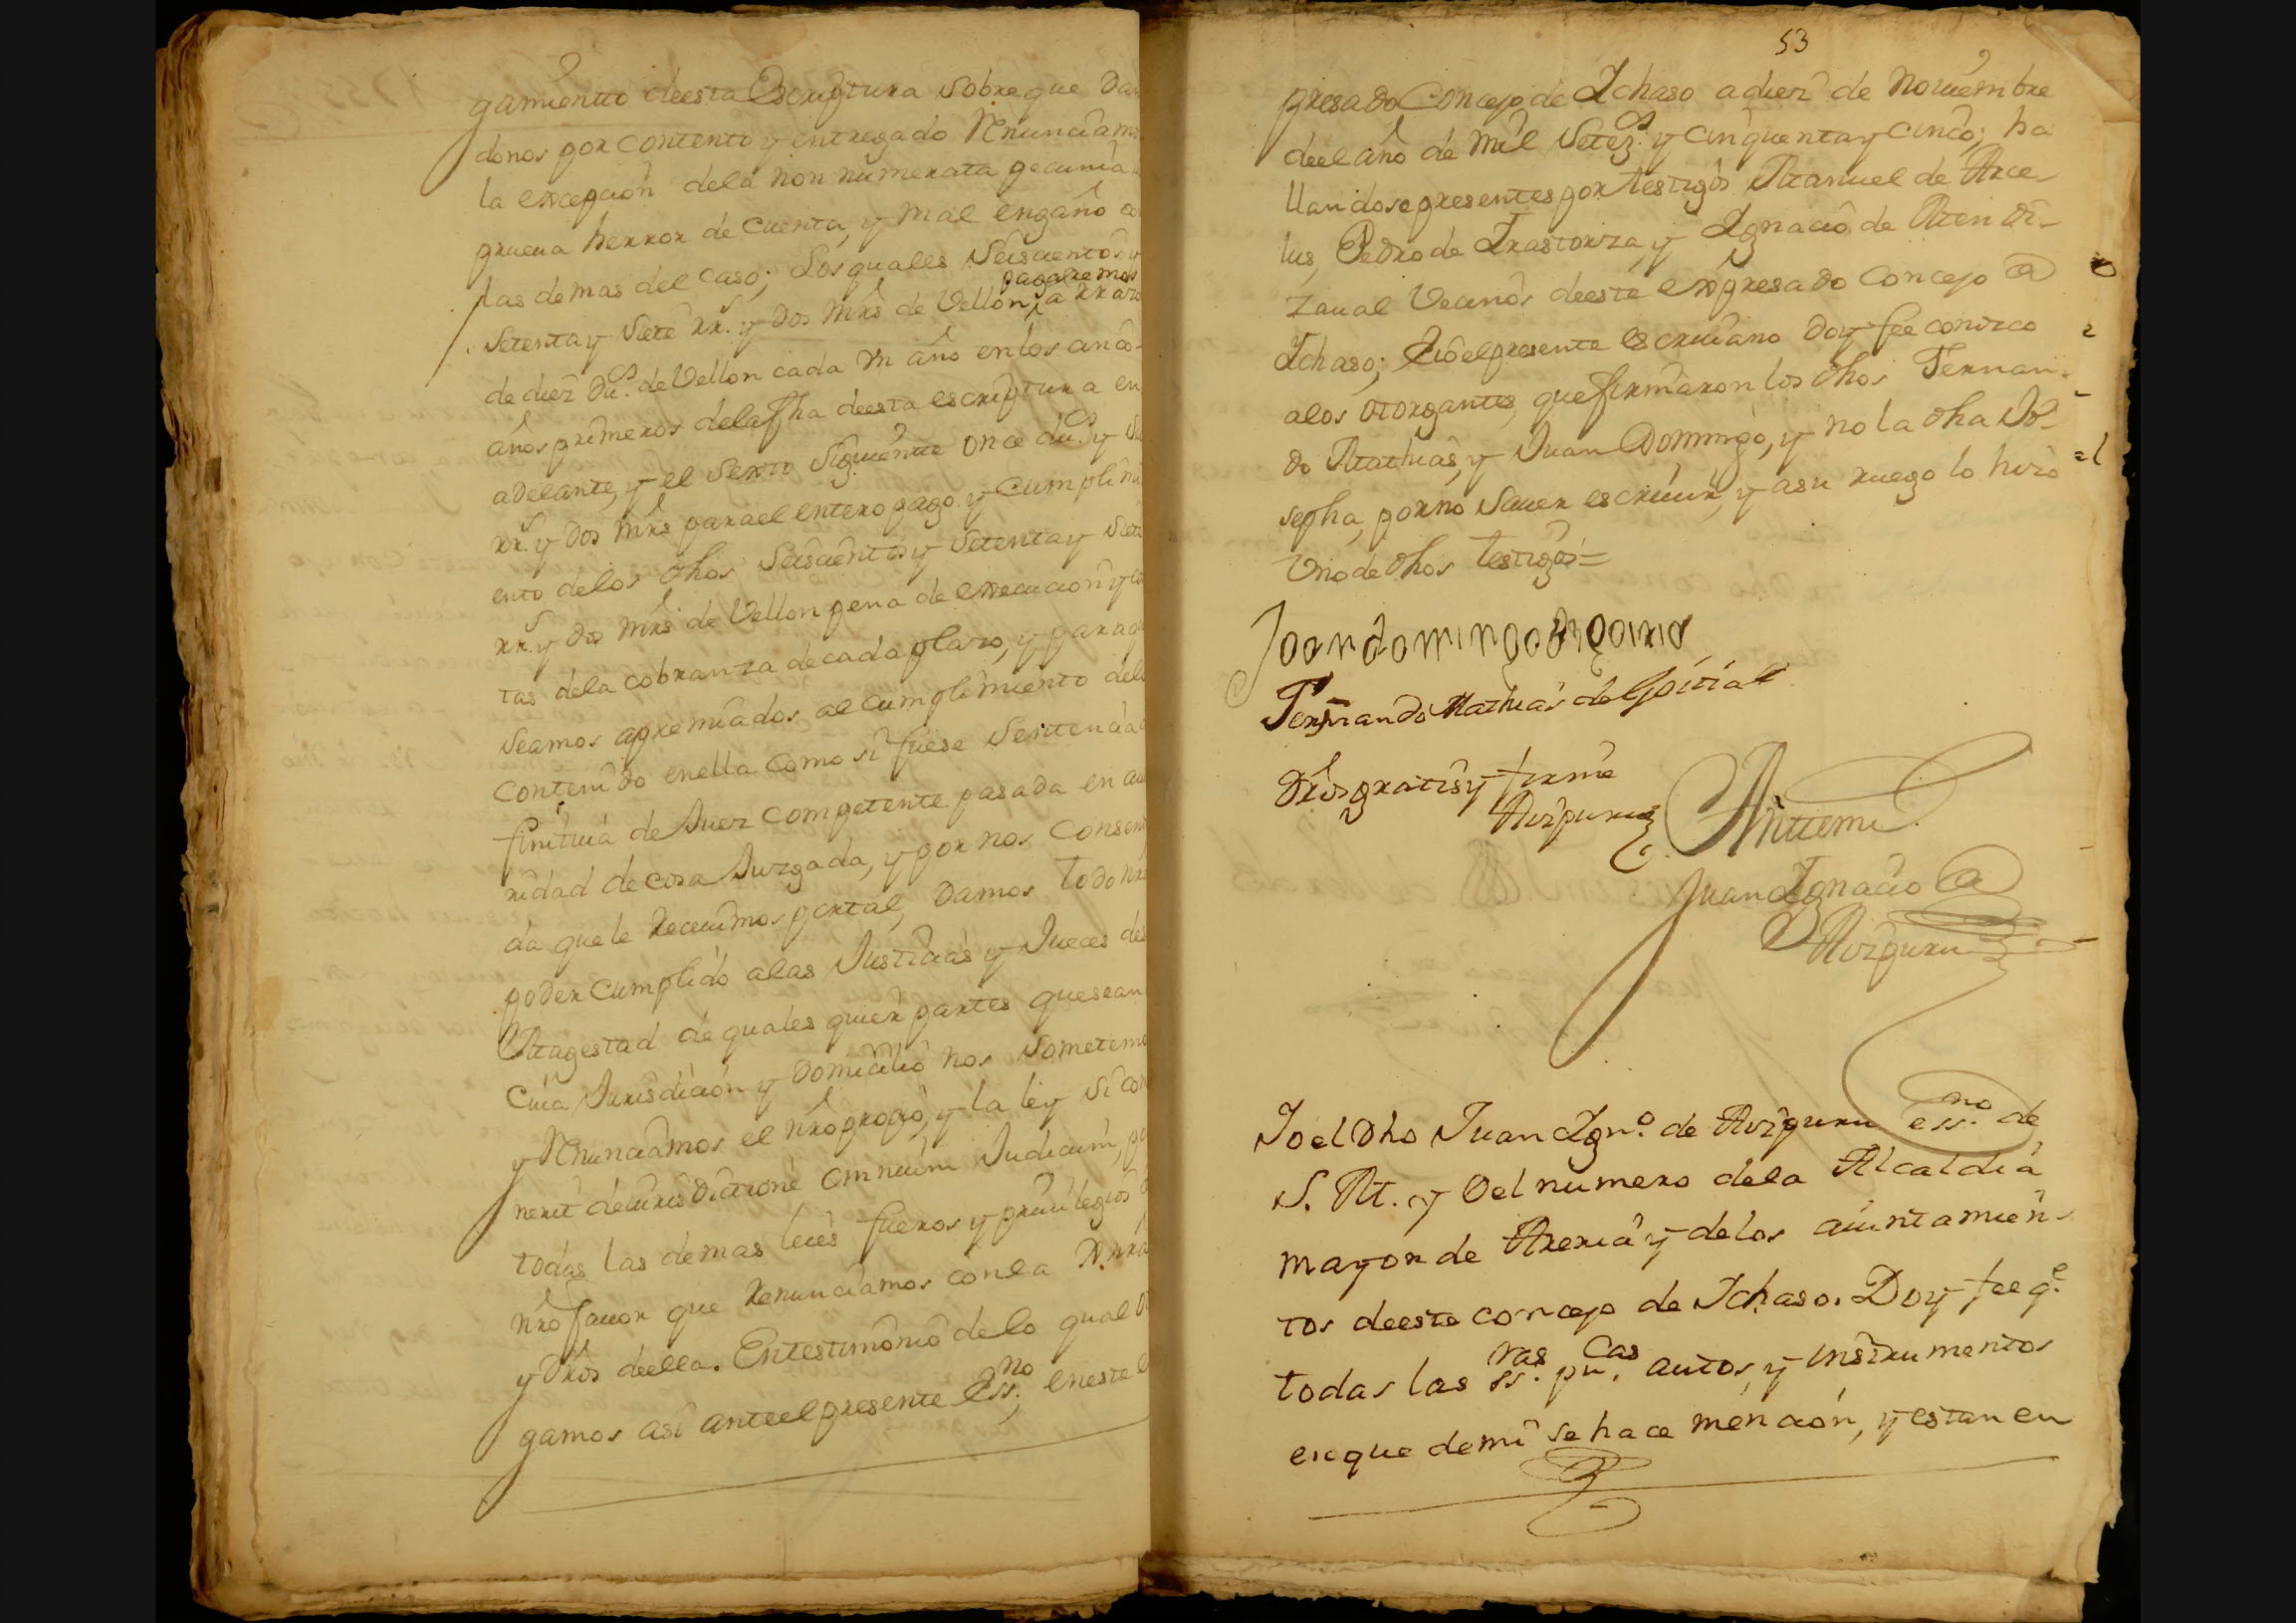 gamiento deesta Escriptura sobre que Dan
donos por contento y entregado Renunciamo
la excepcion dela non numerata pecunia
prueua herror de Cuenta, y mal engaño
las demas del Caso; Los quales Seiscientos y
pagaremos
Setenta y Siete rr.s y Dos mrs de Vellon, a rrazo
de diez Du.s de Vellon cada un año en los cinco
años primeros dela fha deesta escriptura en
adelante, y el Sexto Siguiente once du.s y
rr.s y Dos mrs para el entero pago y Cumplimi
ento delos dhos Seiscientos y Setenta y Siete
rr.s y Dos mrs de Vellon pena de execucion y
tas dela cobranza de cada plazo, y para q
Seamos apremiados al Cumplimiento del
Contenido enella Como si fuese Sentencia
finitiua de Juez Competente pasada en au
ridad de cosa Juzgada, y por nos Consen
da que le Recevimos por tal, Damos todo nro
poder Cumplido alas Justicias y Jueces de
Magestad de quales quier partes que sean
Cuia Jurisdicion y Domicilio nos Sometemo
y Renunciamos el nro propio, y la ley Si con
nerit de Jurisdictione omnium Judicum,
todas las demas leies fueros y priuilegios
nro fauor que Renunciamos con la
y Dros deella. En testimonio de lo qual
gamos asi ante el presente Ess.no, en este
53
presado Concejo de Ichaso a diez de Nouiembre
de el año de mil Setez.s y Cinquenta y Cinco; ha
llandose presentes por testigos Manuel de Arce
lus, Pedro de Irastorza, y Ignacio de Mendi
zaual Vecinos deeste expresado Concejo de
Ichaso; Eio el presente escriuano Doy fee conozco
alos otorgantes, que firmaron los dhos Fernan
do Mathias, y Juan Domingo, y no la dha Jo
sepha, por no Sauer escriuir, y a su ruego lo hizo
Uno de dhos testigos =
Joan domingo de goiria
Fernando Mathias de Goitia
Dros gratis y firme
Aizpuru
Antemi
Juan Ignacio de
Aizpuru
Io el Dho Juan Ign.o de Aizpuru ess.no de
S. M. y Del numero dela Alcaldia
mayor de Areria y delos aiuntamien
tos deeste concejo de Ichaso. Doy fee q.e
todas las ss.ras pu.cas autos, y instrumentos
en que de mi se hace mencion, y estan en